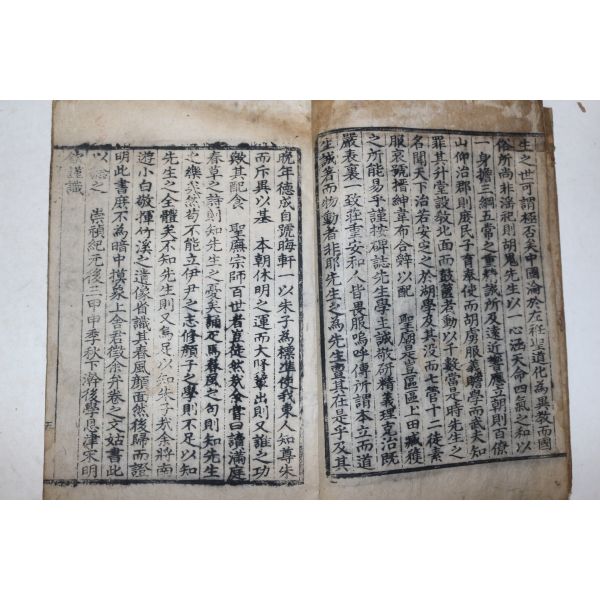 生之世可謂極否矣中國淪於左袵聖道化為異敎而國
俗所尚非淫祀則胡鬼先生以一心涵天命四氣之和以
一身擔三綱五常之重精誠所及遠近響應立朝則百僚
山仰治郡則庶民子育奉使而胡虜服義贍學而武夫知
罪其升堂設敎北面而鼓篋者動以千數當是時先生之
名聞天下治若安定之於湖學及其沒而七管十二徒素
服哀號搢紳韋布合辭以配 聖廟豈區區上田臧獲
之所能易乎謹按碑誌先生學主誠敬研精義理克治既
嚴表裏一致莊重安和人皆畏服嗚呼傳所謂本立而道
生誠著而物動者非耶先生之為先生亶其在是乎及其
晩年德成自號晦軒一以朱子為標準使我東人知尊朱
而斥異以基 本朝休明之運而大賢輩出則又誰之功
歟其配食 聖廡宗師百世者豈徒然哉余嘗曰讀滿庭
春草之詩則知先生之憂矣誦疋馬春風之句則知先生
之樂矣然苟不能立伊尹之志修顔子之學則不足以知
先生之全體矣不知先生則又焉足以知朱子哉余將南
遊小白敬揮竹溪之遺像省識其春風顔面然後歸而證
明此書庶不為暗中摸象上舍君徵余弁卷之文姑書此
以 之 崇禎紀元後三甲申季秋下澣後學恩津宋明
欽謹識